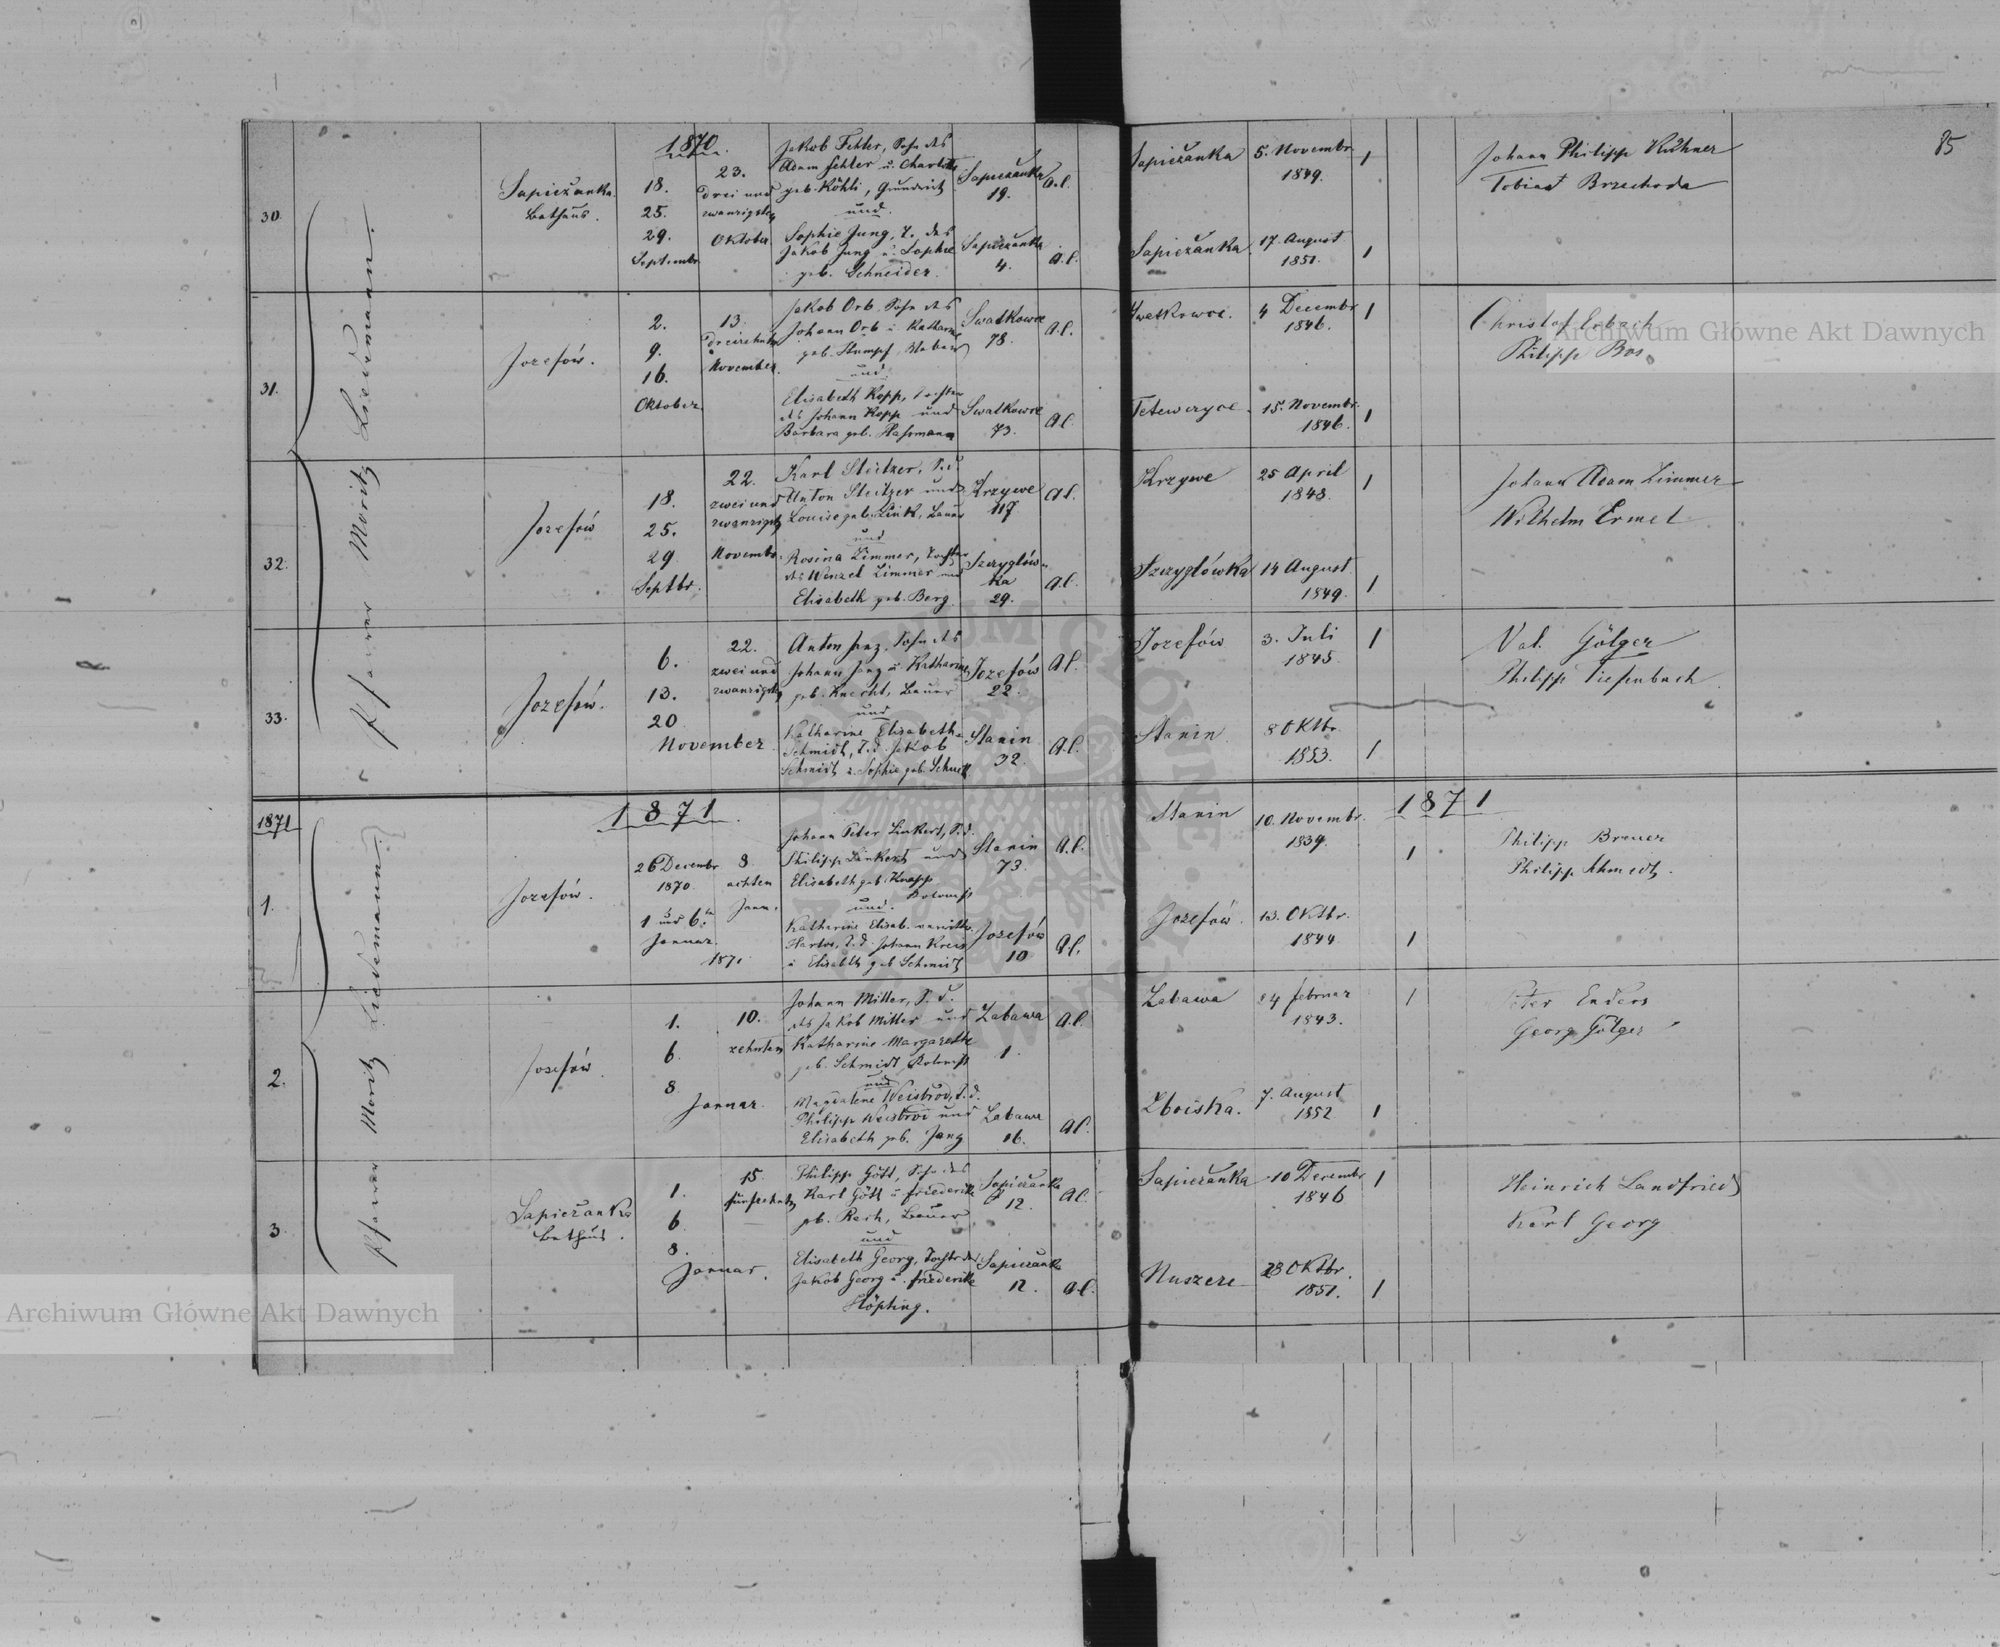 85
1870.
30.
Pfarrer Moritz Liedemann.
Sapiezanka
Bethaus.
18.
25.
29.
Septembr
23.
drei und
zwanzigsten
Oktober
Jakob Fehler, Sohn des
Adam Fehler u. Charlotte
geb. Köhli, Grundwirt
und
Sophie Jung, T. des
Jakob Jung u. Sophie
geb. Schneider.
Sapiezanka
19.
A.C.
Sapiezanka
4.
A.C.
Sapiezanka
5. Novembr
1849.
1
Sapiezanka.
17. August
1851.
1
Johann Philipp Kühner
Tobias Brzechoda
31.
Jozefów.
2.
9.
16.
Oktober
13.
dreizehnten
November.
Jakob Orb. Sohn des
Johann Orb u. Katharina
geb. Stumpf,
und
Elisabeth Kopp, Tochter
des Johann Kopp und
Barbara geb. Hassmann
78.
A.C.
73.
A.C.
4 Decembr
1846.
1
Tetewczyce.
15. Novembr.
1846.
1
Philipp Bos.
32.
Jozefów
18.
25.
29
Septbr.
22.
zwei und
zwanzigst
Novembr.
Karl Steitzer, S. d.
Anton Steitzer und
Louise geb. Link, Bauer
und
Rosina Zimmer, Tochter
des Wenzel Zimmer und
Elisabeth geb. Berg.
Krzywe
117
A.C.
Szczyglów-
ka
29.
A.C.
Krzywe
25 April
1848.
1
Szczyglówka
14 August
1849.
1
Johann Adam Zimmer
Wilhelm Ermel
33.
Jozefów.
6.
13.
20
November
22.
zwei und
zwanzigsten
Anton Janz, Sohn des
Johann Janz u. Katharina
geb. Knecht, Bauer
und
Katharine Elisabetha
Schmidt, T. d. Jakob
Schmidt u. Sophie geb. Schuck
Jozefów
22.
A.C.
Stanin
32.
A.C.
Jozefów
3. Juli
1845.
1
Stanin.
8 Oktbr.
1853.
1
Val. Gölger
Philipp Tiefenbach
1871
1871.
1871
1.
Pfarrer Moritz Liedemann.
Jozefów.
26 Decembr
1870.
1 und 6.
Januar.
1871
8.
achten
Jann.
Johann Peter Linkert, S. d.
Philipp Linkert und
Elisabeth geb. Knapp
und. Kolonist
Katharine Elisab. verwittw.
T. d. Johann Kreis
u Elisabeth geb Schmidt
Stanin
73.
A.C.
Jozefów
10
A.C.
Stanin
10. Novembr.
1839.
1
Jozefów.
13. Oktbr.
1844.
1
Philipp Breuer
Philipp Schmidt.
2.
Josefów.
1.
6.
8
Januar.
10.
zehnten
Johann Miller, S. d.
des Jakob Miller und
Katharine Margarethe
geb. Schmidt, Kolonist
und
Magdalene Weisbrod, T. d.
Philipp Weisbrod und
Elisabeth geb. Jang
Zabawa
1.
A.C.
Zabawa
16.
A.C.
Zabawa
24 februar
1843.
1
Zboiska.
7. August
1852
1
Peter Enders
Georg Gölger
3.
Sapiezanka
Bethaus.
1.
6.
8.
Januar.
15.
fünfzehnten
Philipp Gött, Sohn des
Karl Gött u friederike
geb. Rech, Bauer
und
Elisabeth Georg, Tochter des
Jakob Georg u. friederike
Höpting.
Sapiezanka
12.
A.C.
Sapiezanka
12.
A.C.
Sapiezanka
10 Decembr
1846
1
Nuszcze
28 Oktbr.
1851.
1
Heinrich Landfried
Karl Georg
Archiwum Główne Akt Dawnych
Archiwum Główne Akt Dawnych